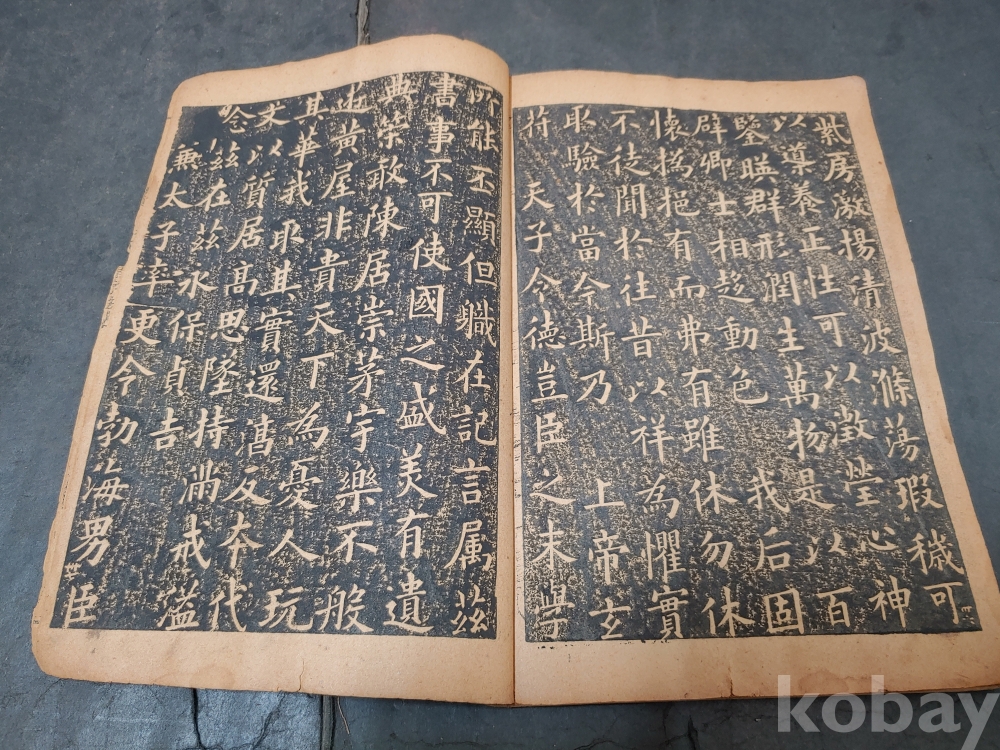 紫房激揚清波滌蕩瑕穢可
以導養正性可以澂瑩心神
鑒暎群形潤生萬物是以百
辟卿士相趍動色 我后固
懷撝挹有而弗有雖休勿休
不徒聞於往昔以祥為懼實
取驗於當今斯乃 上帝玄
苻 天子令德豈臣之末學
所能丕顯但軄在記言属茲
書事不可使國之盛美有遺
典策敢陳居崇茅宇樂不般
遊黃屋非貴天下為憂人玩
其華我取其實還湻反本代
文以質居高思墜持滿戒溢
念茲在茲永保貞吉
兼太子率更令勃海男臣
kobay